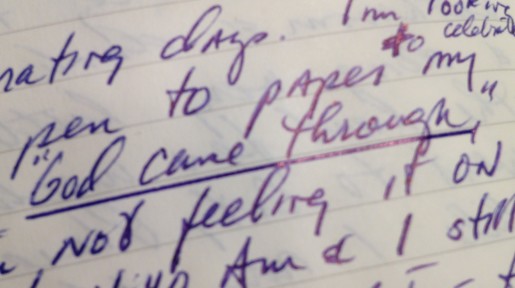 nating days. I'm looking
to celebrate
pen to paper my
"God came through,"
, not feeling it on
am & I still